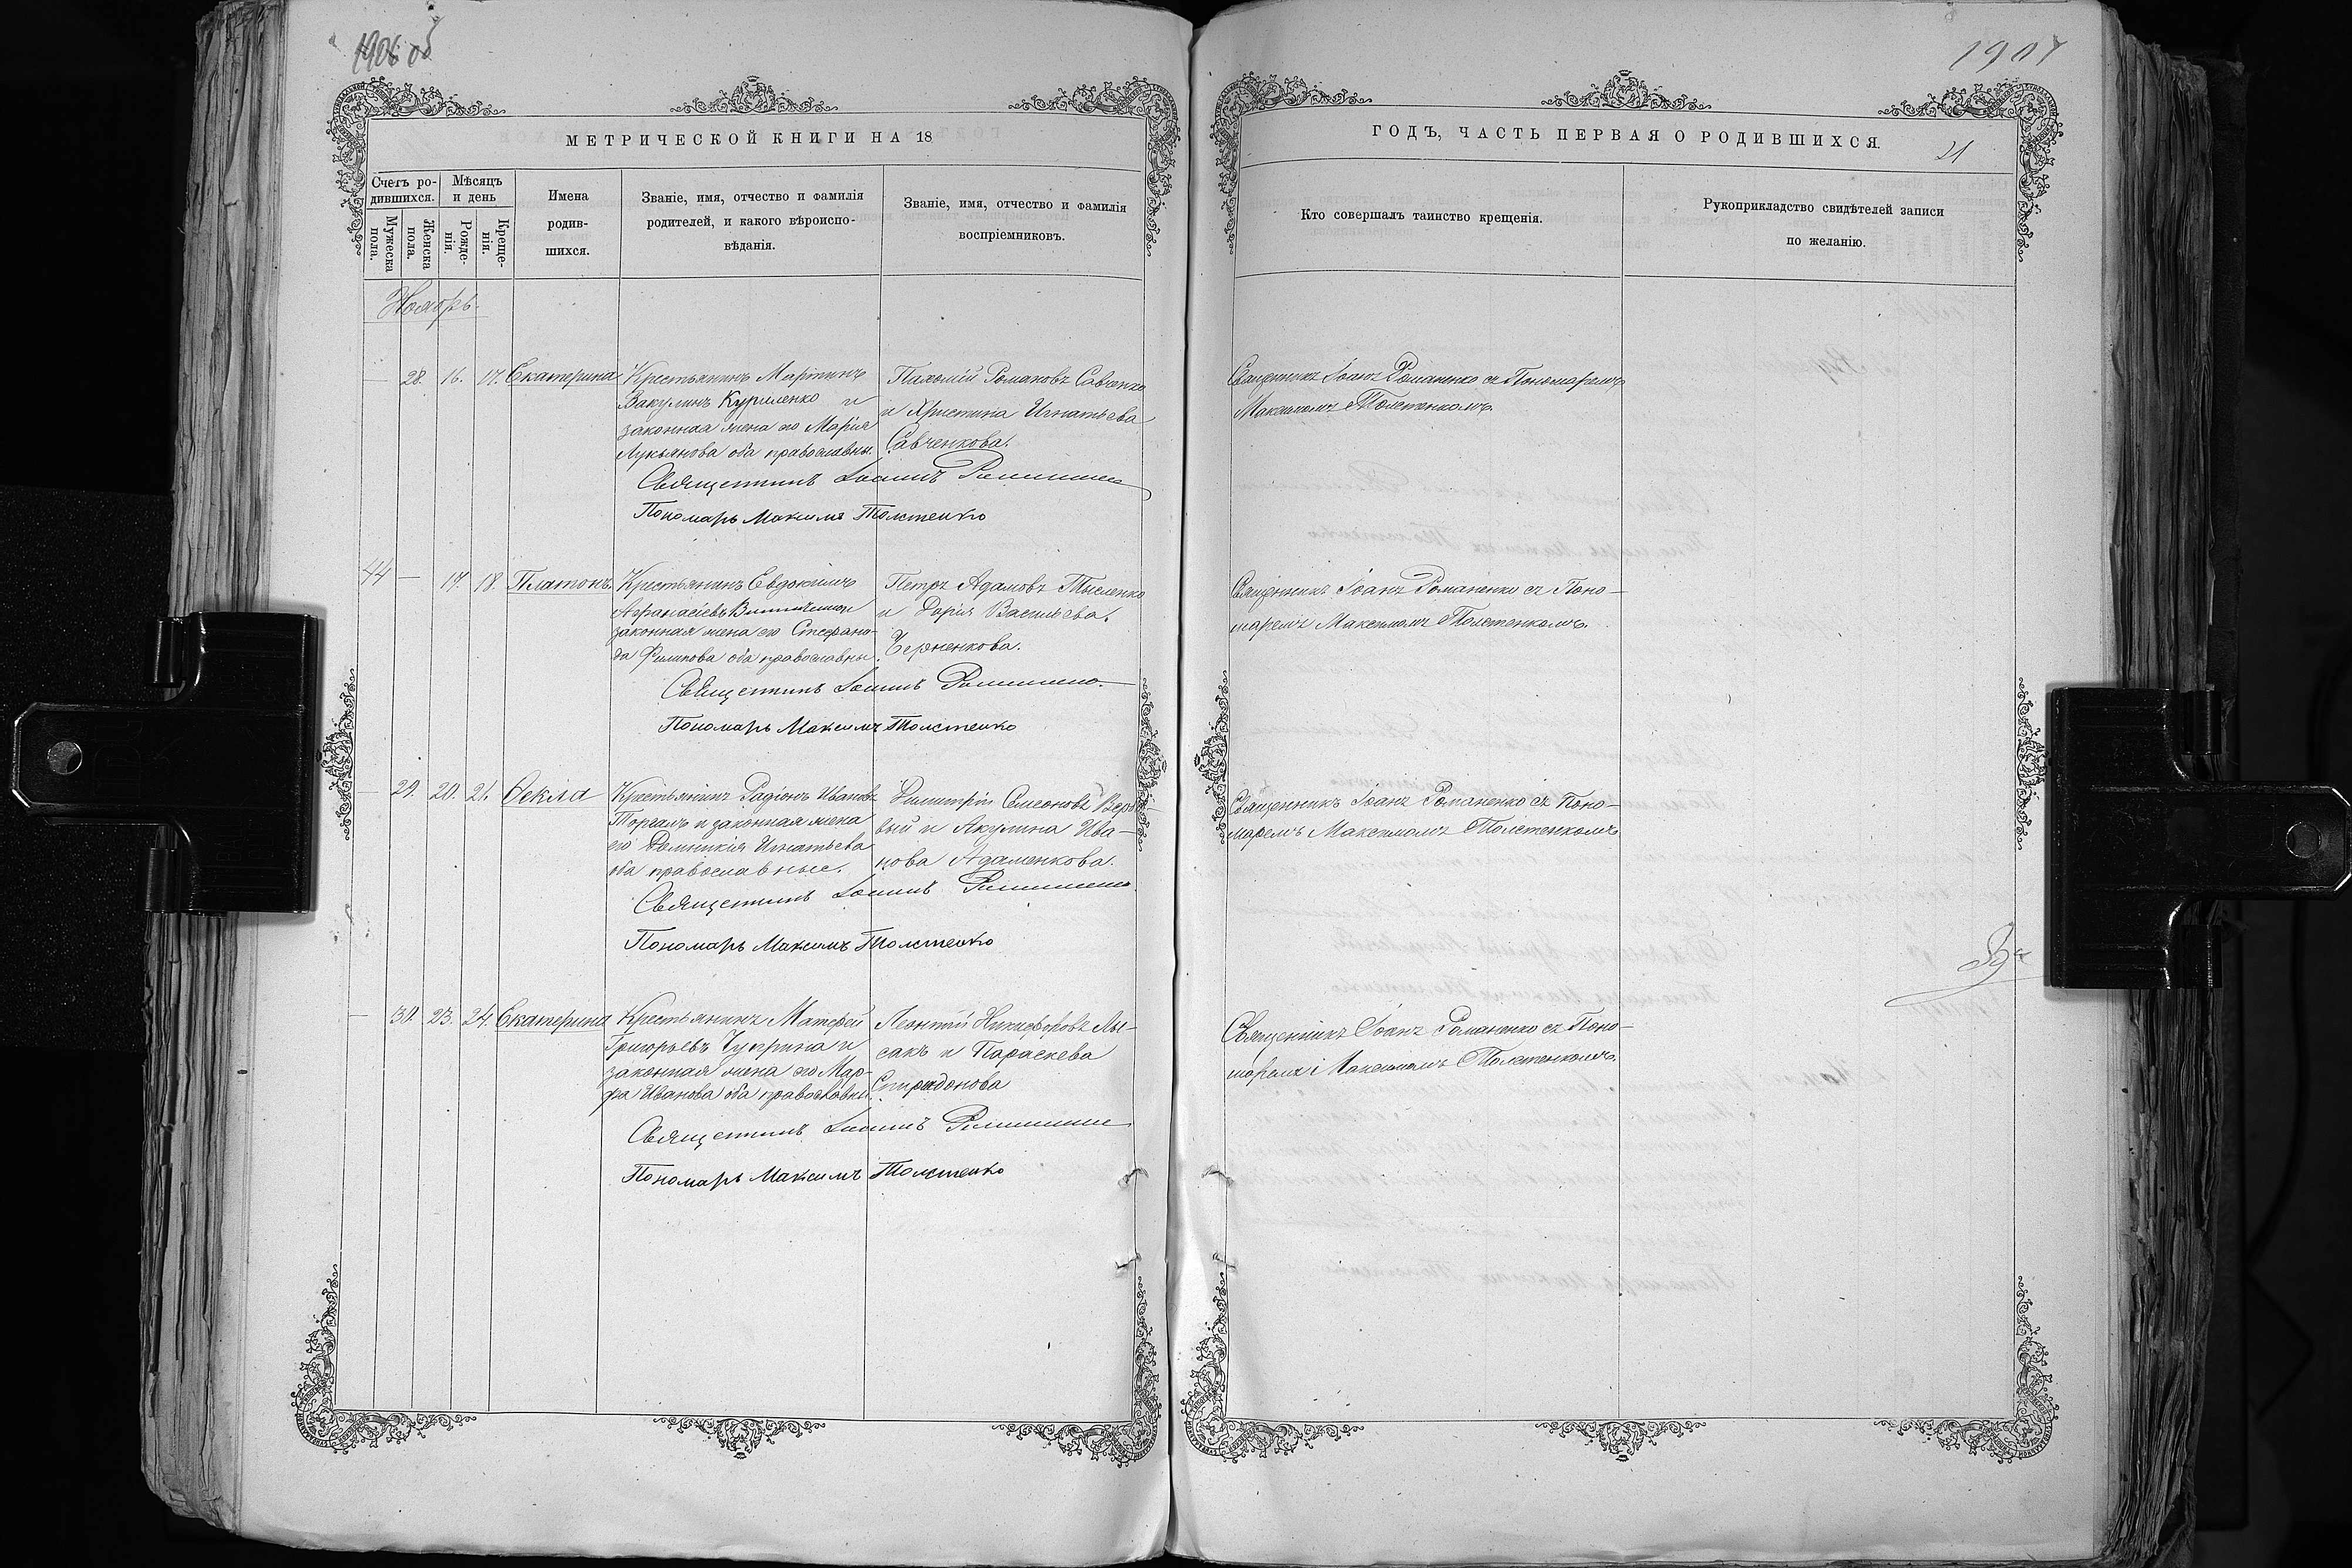 1906 об
МЕТРИЧЕСКОЙ КНИГИ НА 18
Счетъ ро-
дившихся.
Мѣсяцъ
и день
Мужеска
пола.
Женска
пола.
Рожде-
нія.
Креще-
нія.
Имена
родив-
шихся.
Званіе, имя, отчество и фамилія
родителей, и какого вѣроиспо-
вѣданія.
Званіе, имя, отчество и фамилія
воспріемниковъ.
Ноябрь.
— 28. 16. 17. Екатерина
Крестьянинъ Мартинъ
Вакулинъ Куриленко и
законная жена его Марія
Лукьянова оба православны.
Пахомій Романовъ Савченко
и Христина Игнатьева
Савченкова.
Священникъ Іоаннъ Романенко
Пономарь Максимъ Толстенко
44 — 17. 18. Платонъ.
Крестьянинъ Евдокимъ
Афанасіевъ
законная жена его Стефани-
да Филипова оба православны.
Петръ Адамовъ Тысленко
и Дарія Васильева.
Черненкова.
Священникъ Іоаннъ Романенко
Пономарь Максимъ Толстенко
— 29. 20. 21. Ѳекла
Крестьянинъ Радіонъ Ивановъ
и законная жена
его Домникія Игнатьева
оба православные.
Димитрій Симеоновъ Вербо-
вый и Акулина Ива-
нова Адаменкова.
Священникъ Іоаннъ Романенко
Пономарь Максимъ Толстенко
— 30. 23. 24. Екатерина
Крестьянинъ Матфей
Григорьевъ Чуприна и
законная жена его Мар-
фа Иванова оба православны.
Леонтій Никифоровъ Лы-
сакъ и Параскева
Спиридонова
Священникъ Іоаннъ Романенко
Пономарь Максимъ Толстенко
1907
ГОДЪ, ЧАСТЬ ПЕРВАЯ О РОДИВШИХСЯ.
21
Кто совершалъ таинство крещенія.
Рукоприкладство свидѣтелей записи
по желанію.
Священникъ Іоанъ Романенко съ Пономаремъ
Максимомъ Толстенкомъ.
Священникъ Іоанъ Романенко съ Поно-
маремъ Максимомъ Толстенкомъ.
Священникъ Іоанъ Романенко съ Поно-
маремъ Максимомъ Толстенкомъ
Священникъ Іоанъ Романенко съ Поно-
маремъ Максимомъ Толстенкомъ.